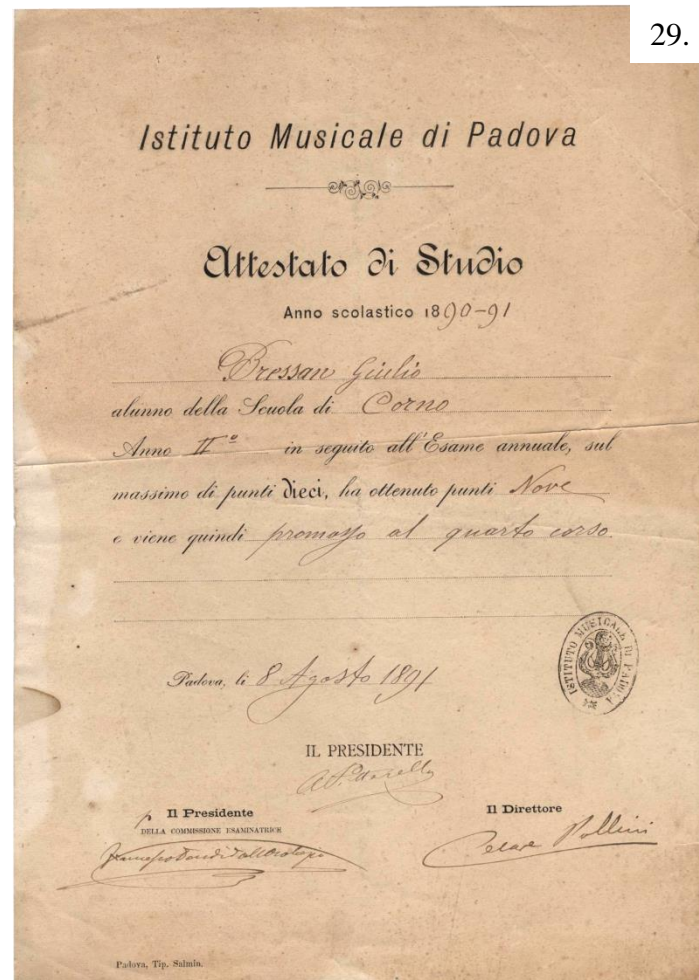 29.
Istituto Musicale di Padova
Attestato di Studio
Anno scolastico 1890-91
Bressan Giulio
alunno della Scuola di Corno
Anno II° in seguito all'Esame annuale, sul
massimo di punti dieci, ha ottenuto punti Nove
e viene quindi promosso al quarto corso.
ISTITUTO MUSICALE DI PADOVA
Padova, li 8 Agosto 1891
IL PRESIDENTE
Il Presidente
DELLA COMMISSIONE ESAMINATRICE
Il Direttore
Cesare Pollini
Padova, Tip. Salmin.